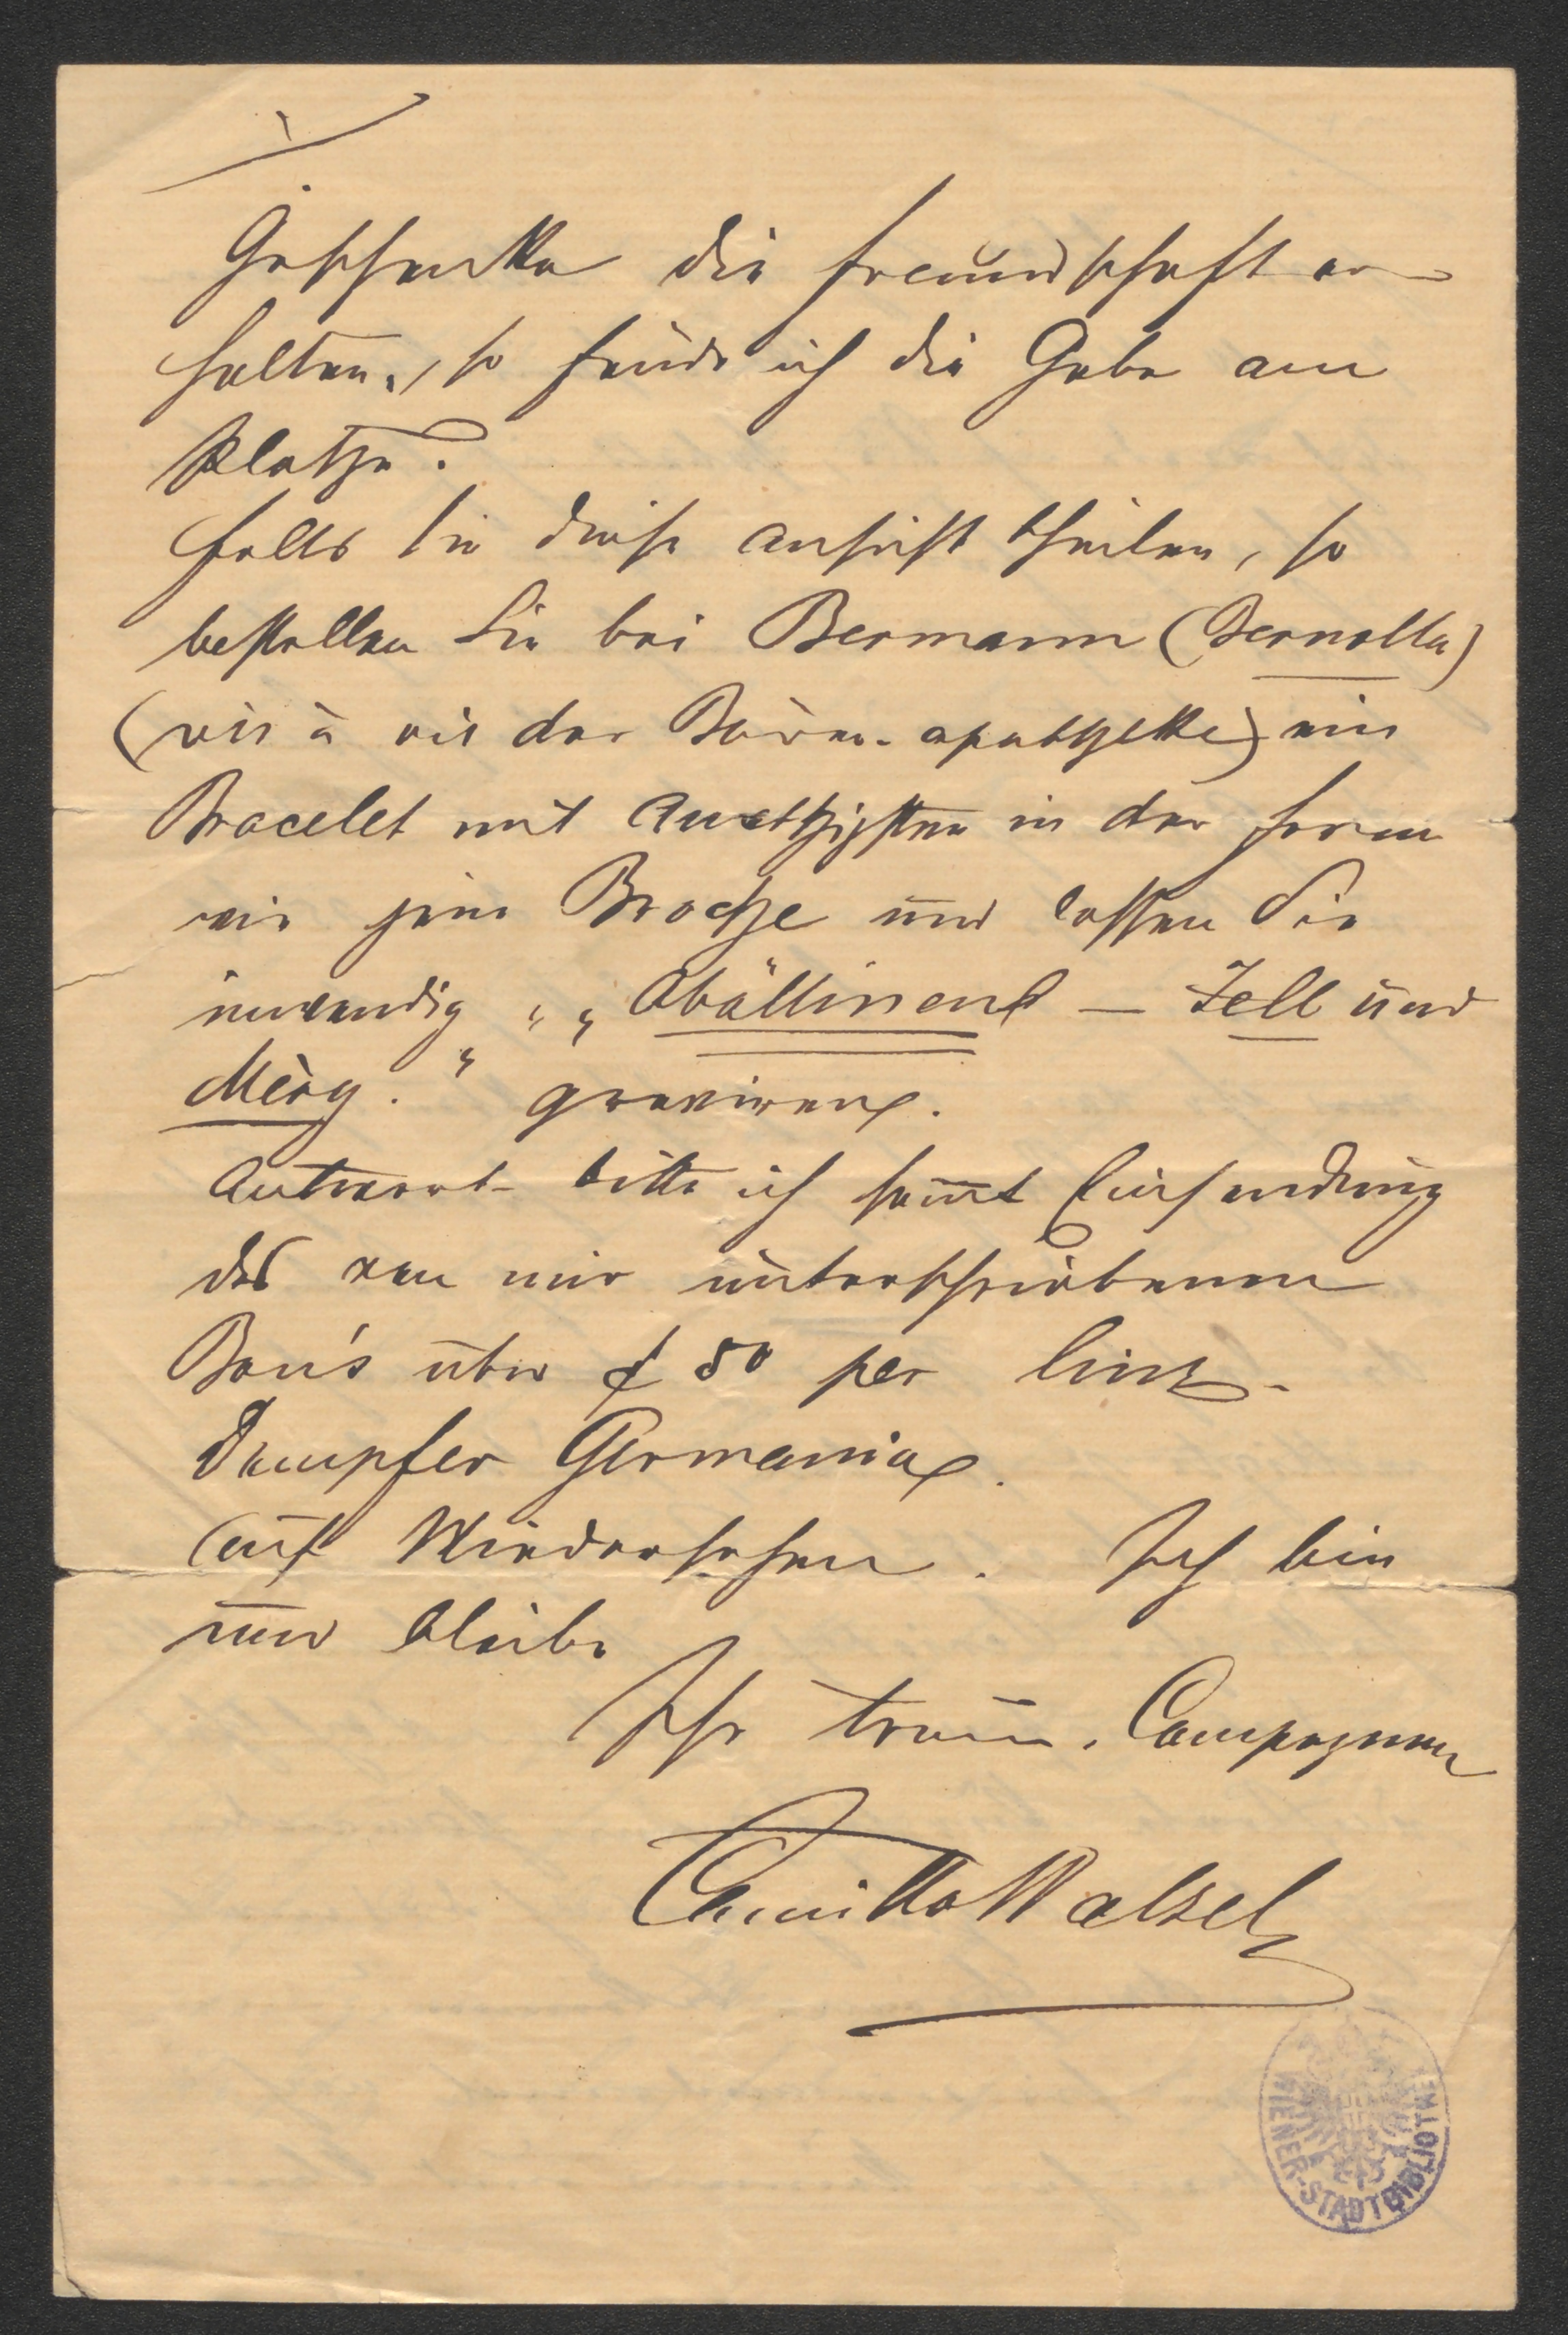 Geschenke die Freundschaft er-
halten, so fände ich die Gabe am
Platze.
Falls Sie diese Ansicht theilen, so
bestellen Sie bei Bermann (Bernolla)
(vis à vis der Bären-apothekke) ein
Bracelet mit Amethisten in der Form
wie jene Broche und lassen Sie
inwendig „Abällinend — Zell und
Merg." graviren.
Antwort bitte ich samt Einsendung
des von mir unterschriebenen
Bon's über f 50 per Linz.
Dampfer Germania.
Auf Wiedersehen. Ich bin
und bleibe
Ihr treuer Compagnon
Camillo Walzel
WIENER-STADTBIBLIOTHE